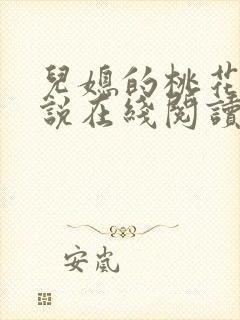 兒媳的桃花
說在綫閱讀
安嵐